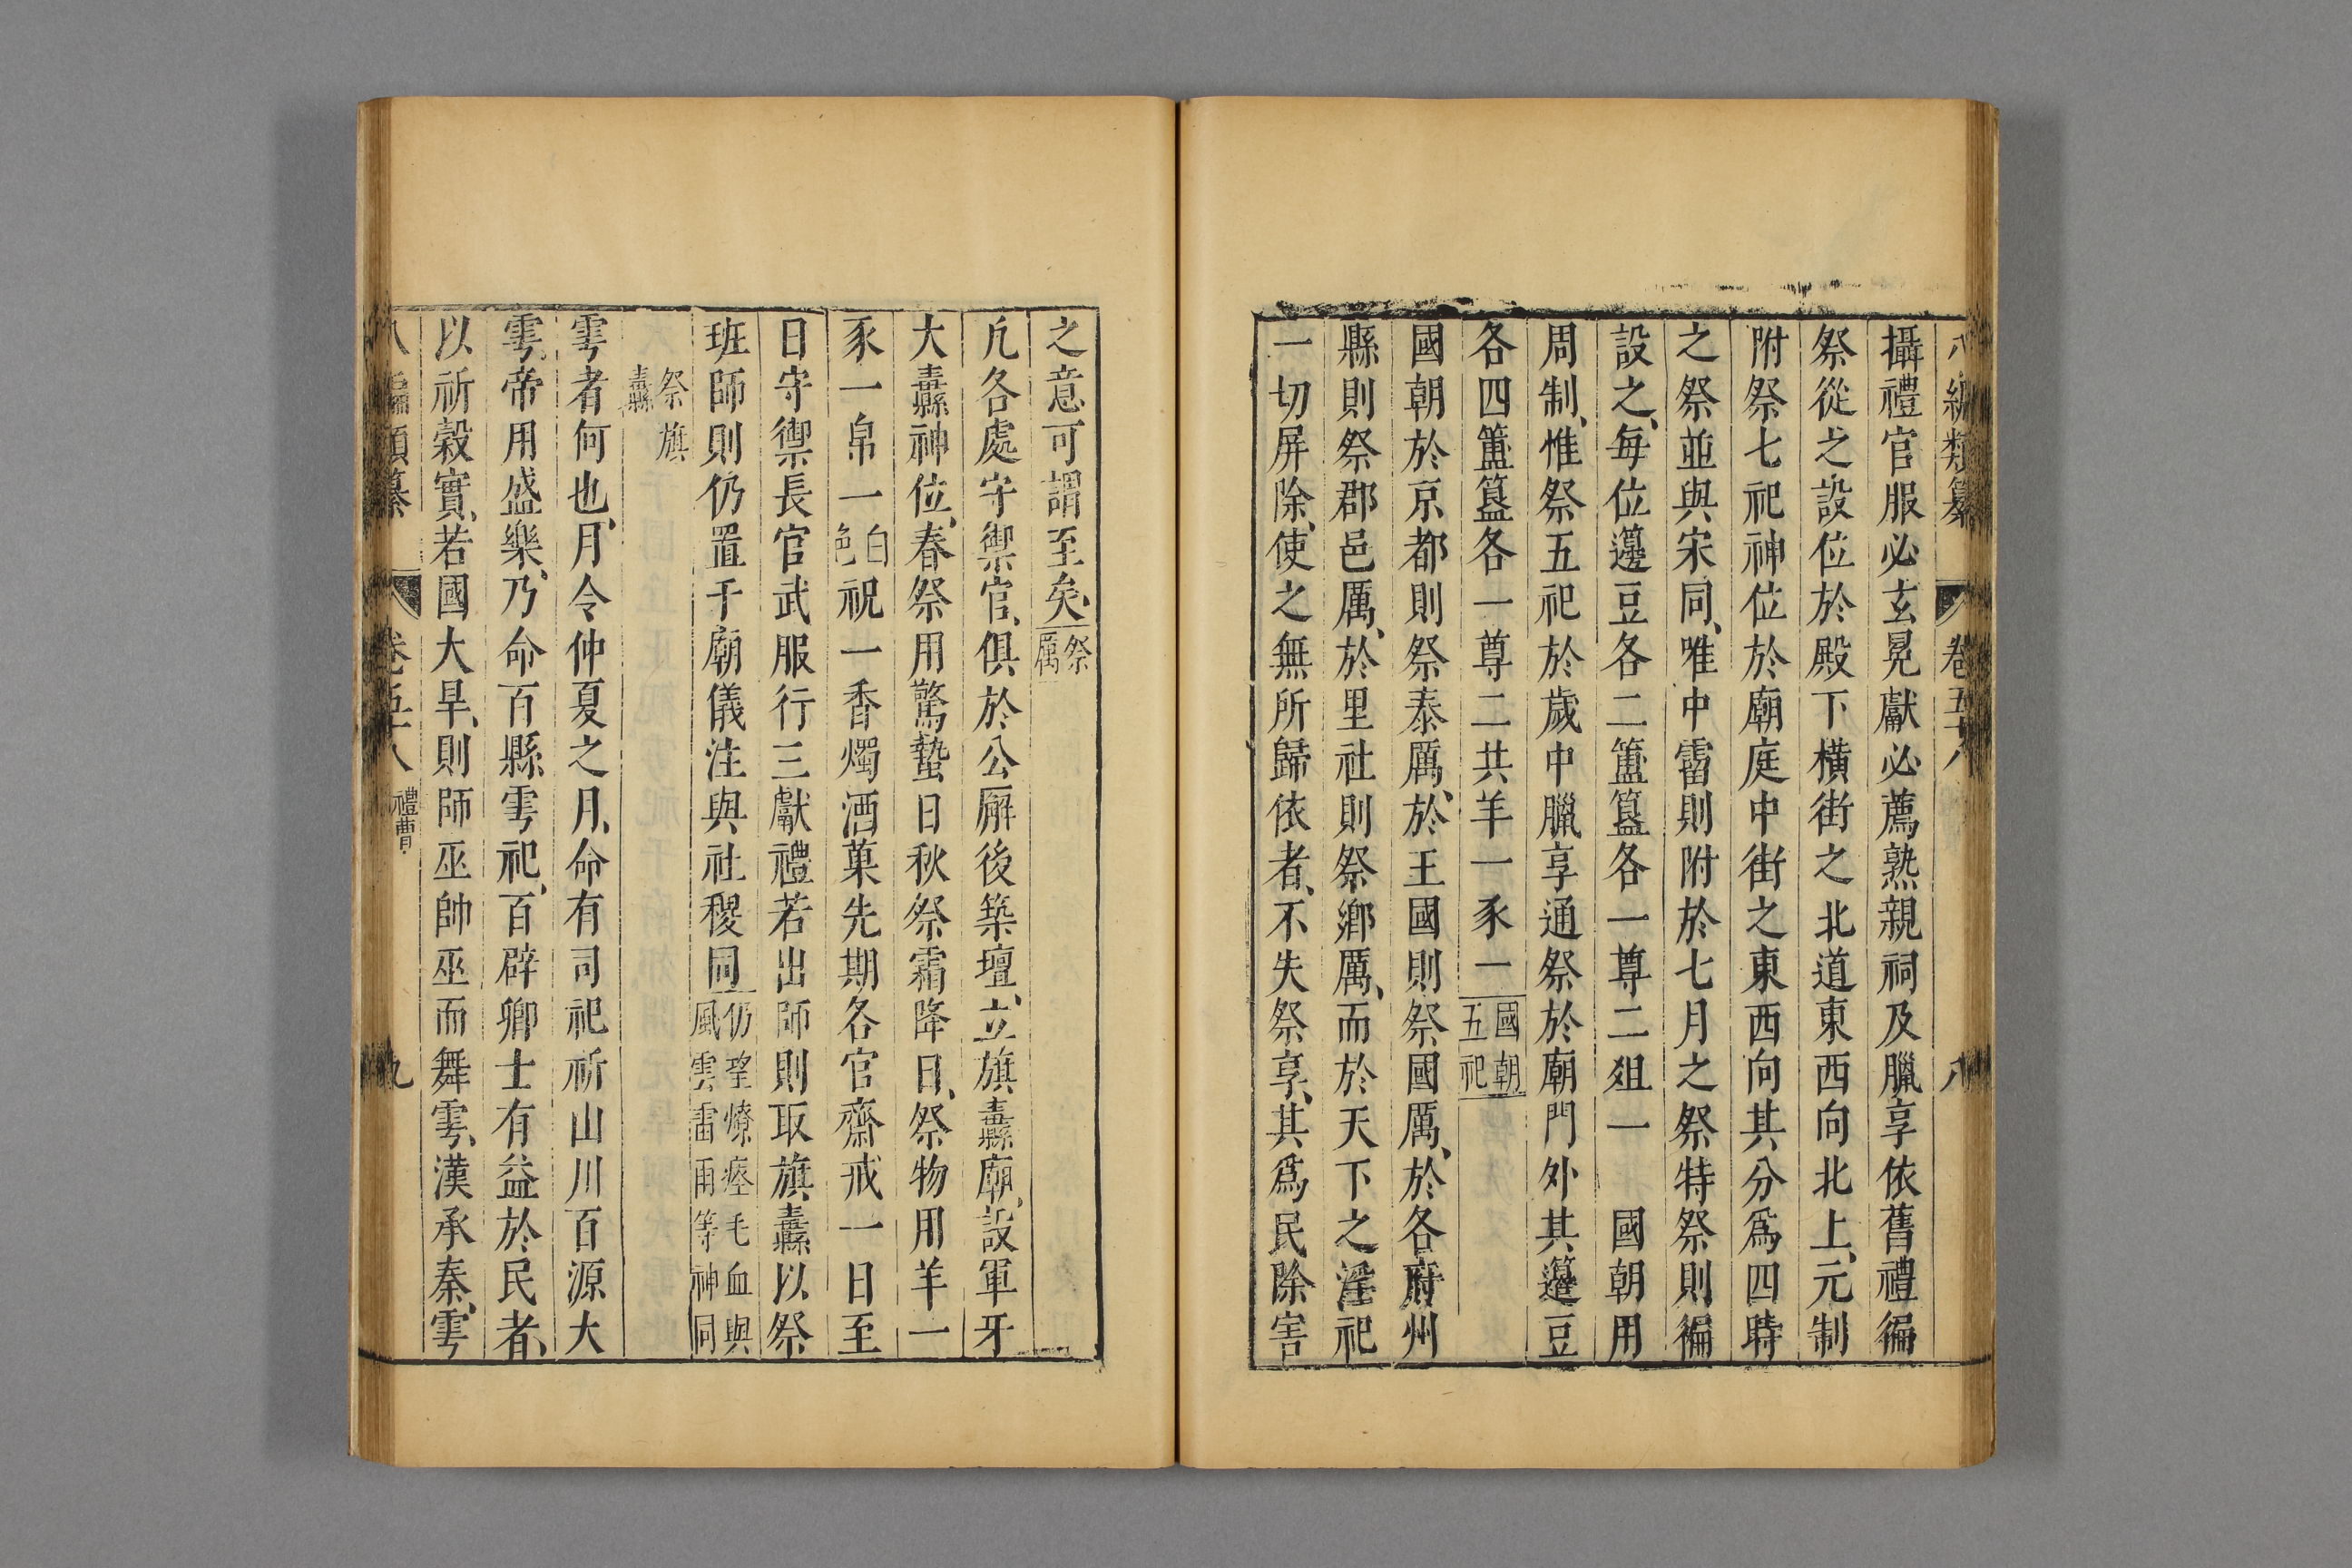 八編類纂 卷五十八 八
攝禮官服必玄冕獻必薦熟親祠及臘享依舊禮徧
祭從之設位於殿下橫街之北道東西向北上、元制
附祭七祀神位於廟庭中街之東西向其分爲四時
之祭並與宋同、唯中霤則附於七月之祭特祭則徧
設之、每位籩豆各二簠簋各一尊二俎一 國朝用
周制、惟祭五祀於歲中臘享通祭於廟門外其籩豆
各四簠簋各一尊二共羊一豕一國朝五祀
國朝於京都則祭泰厲、於王國則祭國厲、於各府州
縣則祭郡邑厲、於里社則祭鄉厲、而於天下之淫祀
一切屏除、使之無所歸依者、不失祭享、其爲民除害
之意可謂至矣祭厲
凡各處守禦官、俱於公廨後築壇、立旗纛廟、設軍牙
大纛神位、春祭用驚蟄日秋祭霜降日、祭物用羊一
豕一帛一白色祝一香燭酒菓先期各官齋戒一日至
日守禦長官武服行三獻禮若出師則取旗纛以祭
班師則仍置于廟儀注與社稷同仍望燎瘞毛血與風雲雷雨等神同
祭旗纛
雩者何也、月令仲夏之月、命有司祀祈山川百源大
雩、帝用盛樂、乃命百縣雩祀、百辟卿士有益於民者、
以祈穀實、若國大旱、則師巫帥巫而舞雩、漢承秦、雩
八編類纂 卷五十八 禮曹 九